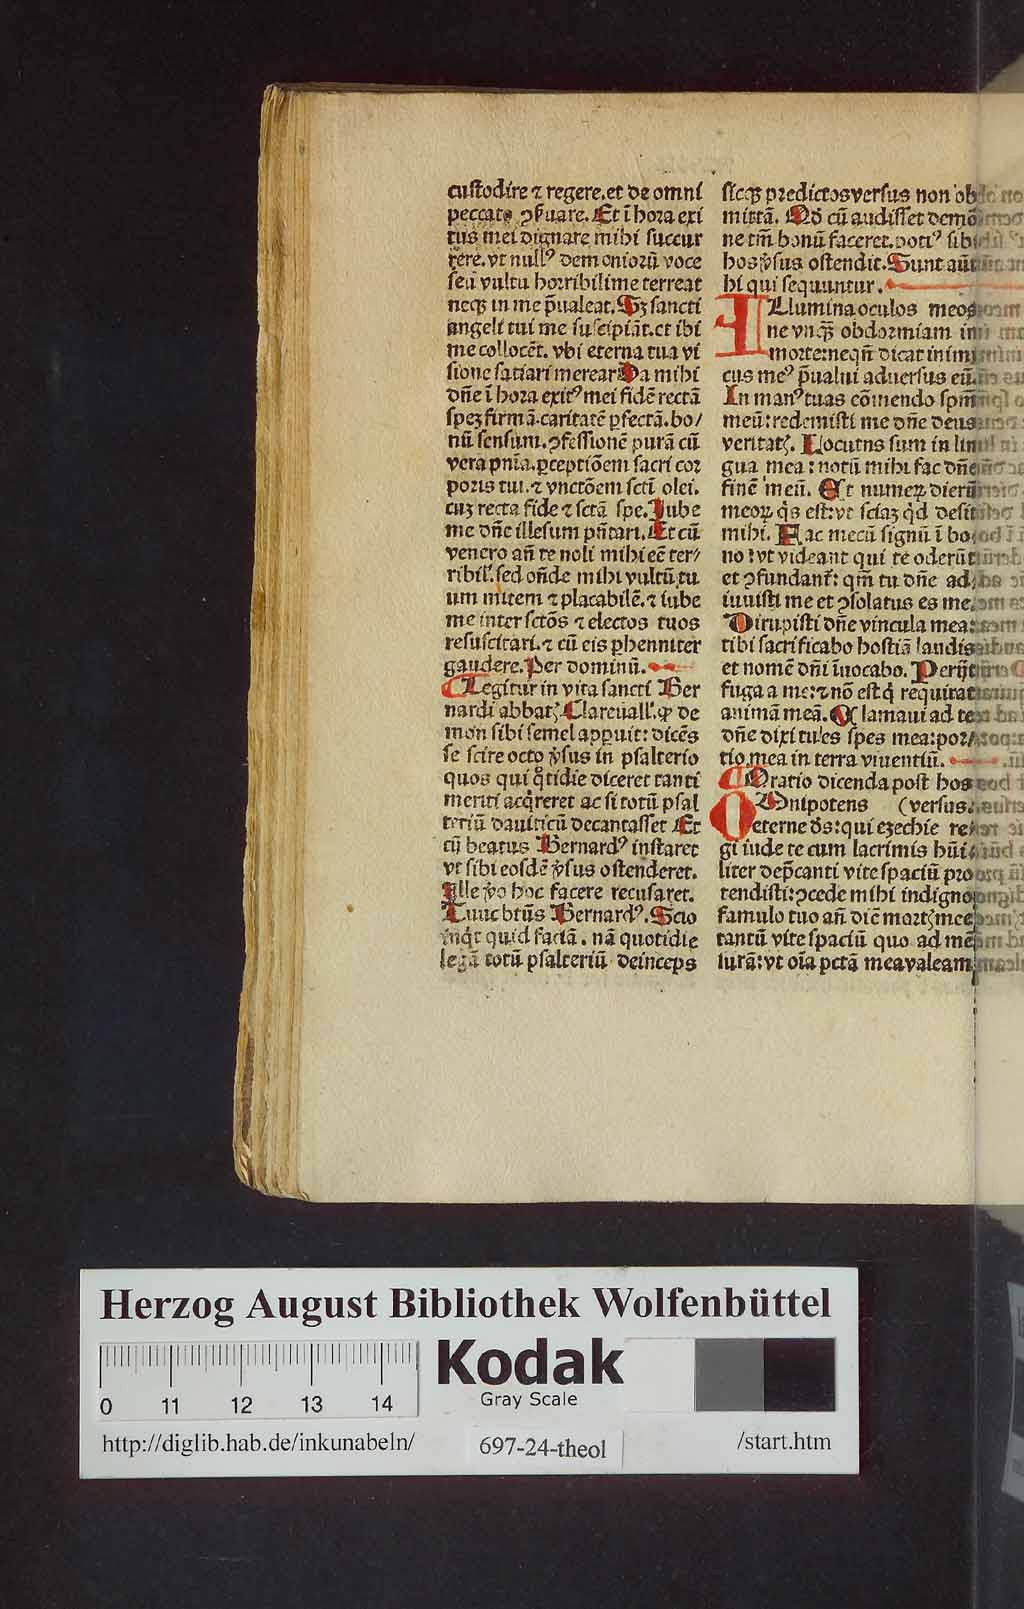 custodire ⁊ regere.et de omni
peccato ꝯẜuare. Et ī hora exi
tus mei dignare mihi succur
rere. vt nullꝰ demoniorū voce
seu vultu horribili me terreat
neqꝫ in me p̄ualeat. Sꝫ sancti
angeli tui me suscipiāt.et ibi
me collocēt. vbi eterna tua vi
sione satiari merear Da mihi
dn̄e ī hora exitꝰ mei fidē rectā
speꝫ firmā.caritatē ꝑfectā.bo/
nū sensum.ꝯfessionē purā cū
vera pn̄ia.ꝑceptiōem sacri cor
poris tui.⁊ vnctōem sctī olei.
cuꝫ recta fide ⁊ sctā spe. Iube
me dn̄e illesum pn̄tari. Et cū
venero an̄ te noli mihi eē ter/
ribil'.sed on̄de mihi vultū tu
um mitem ⁊ placabilē.⁊ iube
me inter sctōs ⁊ electos tuos
resuscitari.⁊ cū eis ꝑhenniter
gaudere. Per dominū.
Legitur in vita sancti Ber
nardi abbatꝭ Clareuall'. ꝙ de
mon sibi semel apparuit: dicēs
se scire octo ꝟsus in psalterio
quos qui qͦtidie diceret tanti
meriti acqͥreret ac si totū psal
teriū dauiticū decantasset Et
cū beatus Bernardꝰ instaret
vt sibi eosdē ꝟsus ostenderet.
Ille ꝟo hoc facere recusaret.
Tunc btūs Bernardꝰ. Scio
inqͥt quid faciā. nā quotidie
legā totū psalteriū deinceps
sicqꝫ predictos versus non ob
mittā. Qd̄ cū audisset demō
ne tm̄ bonū faceret.potiꝰ sibi
hos ꝟsus ostendit. Sunt aūt
hi qui sequuntur.
Illumina oculos meos
ne vnqꝫ obdormiam in
morte:neqn̄ dicat inim
cus meꝰ p̄ualui aduersus eū.
In manꝰ tuas cōmendo spm̄
meū:redemisti me dn̄e deus
veritatꝭ. Locutus sum in lin
gua mea: notū mihi fac dn̄e
finē meū. Et numeꝝ dierū
meoꝝ qͥs est:vt sciaꝫ qͥd desit
mihi. Fac mecū signū ī bo
no:vt videant qui te oderūt
et ꝯfundant᷑: qm̄ tu dn̄e ad
iuuisti me et ꝯsolatus es me.
Dirupisti dn̄e vincula mea:
tibi sacrificabo hostiā laudis
et nomē dn̄i īuocabo. Perijt
fuga a me:⁊ nō est qͥ requirat
animā meā. Clamaui ad te
dn̄e dixi tu es spes mea:por/
tio mea in terra viuentiū.
Oratio dicenda post hos
Omnipotens (versus.
eterne d̄s:qui ezechie re
gi iude te cum lacrimis hūi
liter dep̄canti vite spaciū pro
tendisti:ꝯcede mihi indigno
famulo tuo an̄ diē mortꝭ mee
tantū vite spaciū quo ad mē
surā:vt oīa pctā mea valeam
Herzog August Bibliothek Wolfenbüttel
0 11 12 13 14
Kodak
Gray Scale
http://diglib.hab.de/inkunabeln/
697-24-theol
/start.htm